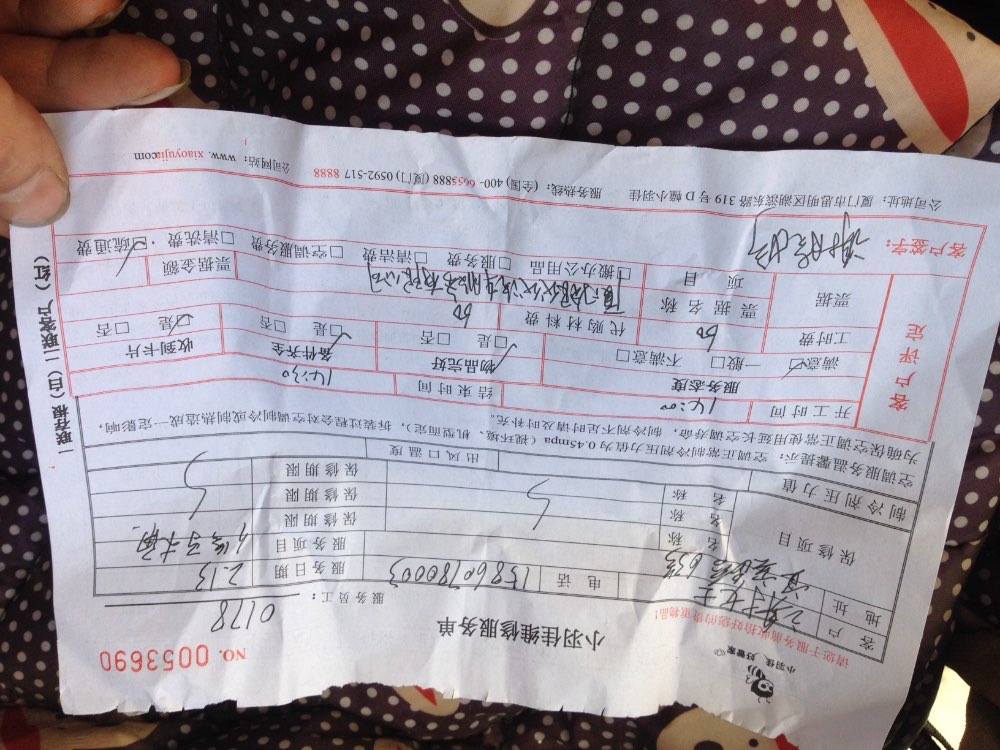 小羽佳 好管家
小羽佳维修服务单
NO. 0053690
请您于服务前收拾好您的贵重物品!
服务员工: 0178
客户 电话 15860780003 服务日期 2.13
地址 服务项目
保修项目 名称 保修期限
名称 保修期限
名称 保修期限
制冷剂压力值 出风口温度
空调服务温馨提示: 空调正常制冷剂压力值为0.45mpa(视环境、机型而定), 拆装过程会对空调制冷或制热造成一定影响,
为确保空调正常使用延长空调寿命, 制冷剂不足时请及时补充。
客户评定
开工时间 14:00 结束时间 14:30
服务态度 物品完好 备件齐全 收到卡片
满意☑ 一般□ 不满意□ 是☑ 否□ 是☑ 否□ 是☑ 否□
工时费 60 代购材料费 60
票据 票据名称 票据金额
项目 □搬办公用品 □服务费 □清洁费 □空调服务费 □清洗费 ☑疏通费
客户签字:
公司地址: 厦门市思明区湖滨东路319号D幢小羽佳 服务热线: (全国) 400-6655888 (厦门) 0592-517 8888 公司网站: www.xiaoyujia.com
一联存根(白)二联客户(红)